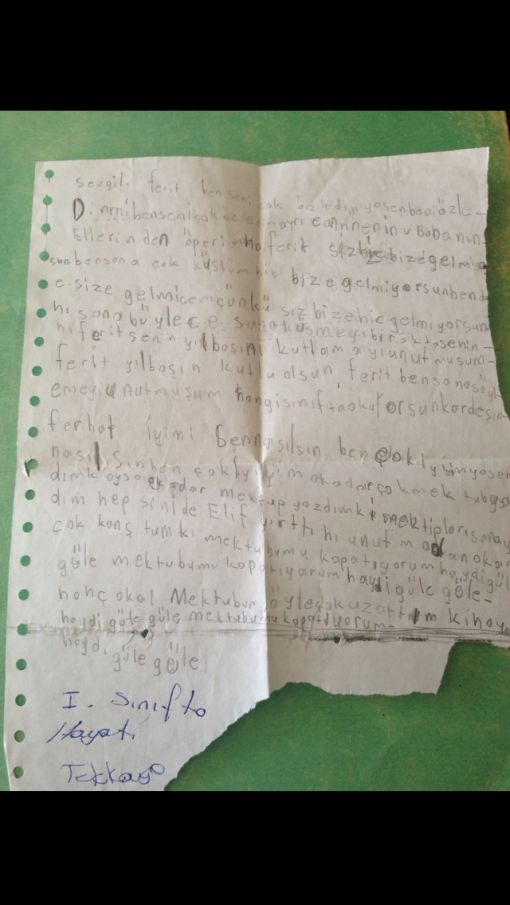 sevgili ferit ben seni çok özledim ya sen beni özle-
Din mi ben seni çok özledim ayrı cannenin v Babanın
Ellerinden öperim ha ferit siz bize gelmiyor
sun ben sana çok küstüm hiç bize gelmiyorsun bende
c size gelmicem çünkü siz bize hic gelmiyorsun
hı sana böylece sana küsmeyi bıraktı senin-
hı ferit senin yılbaşını kutlamayı unutmuşum-
ferit yılbaşın kutlu olsun, ferit ben sana söyl
emeyi unutmuşum hangi sınıfta okulorsun kardeşin
ferhat iyimi Sen nasılsın ben çok iyiyim ya sen
nasılsın ben çok iyiyim o kadar çok mektub yaz
dımki oysa kadar mektup yazdımki mektipları sana y
dım hep sinide Elif yırttı hı unutmadan oka
çok konş tumki mektubumu kapatıyorum haydi gül
güle mektubumu kapatıyorum haydi güle güle-
honç okal Mektubur öyle çok uzattım ki hay
haydi güle güle mektubumu kapatıyorum-
haydi güle güle
I. Sınıfta
Hayati
Tekkaya